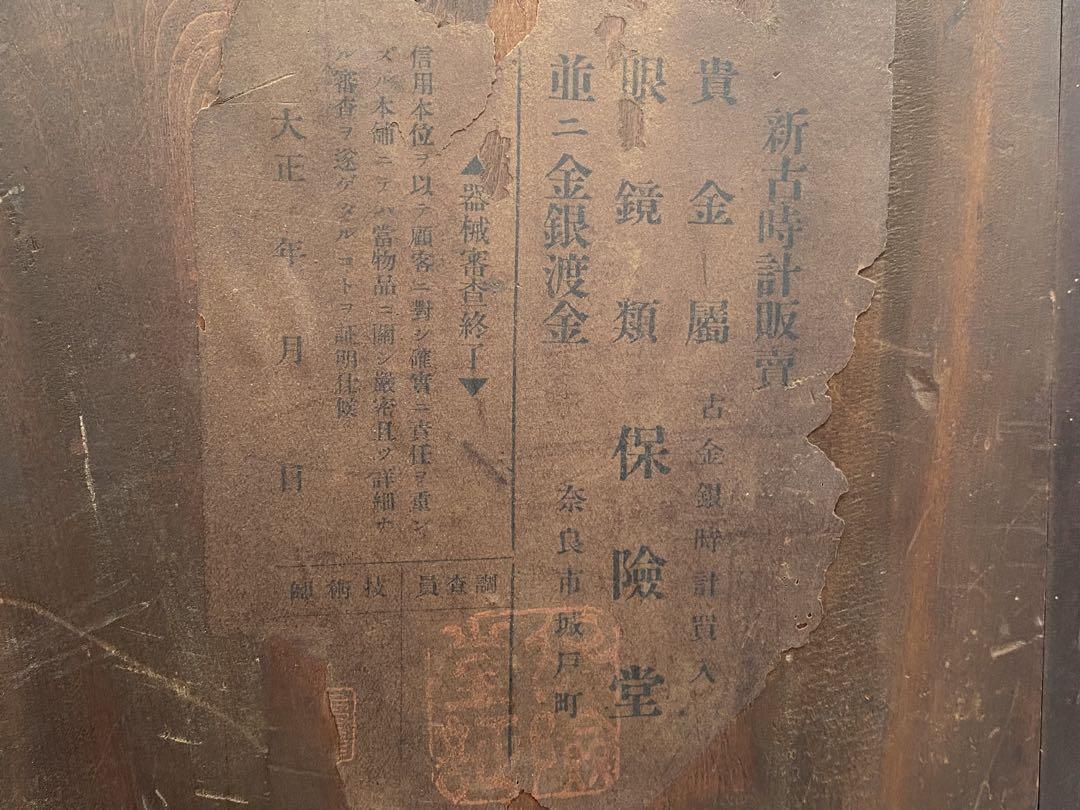 新古時計販賣
貴金屬 古金銀時計買入
眼鏡類 保險堂
並ニ金銀渡金 奈良市城戸町
▲器械審査終了▼
信用本位ヲ以テ顧客ニ對シ確實ニ責任ヲ重ン
ズル本舗ニテハ當物品ニ關シ嚴密且ツ詳細ナ
ル審査ヲ遂ゲタルコトヲ証明仕候
大正 年 月 日
調査員
技術師